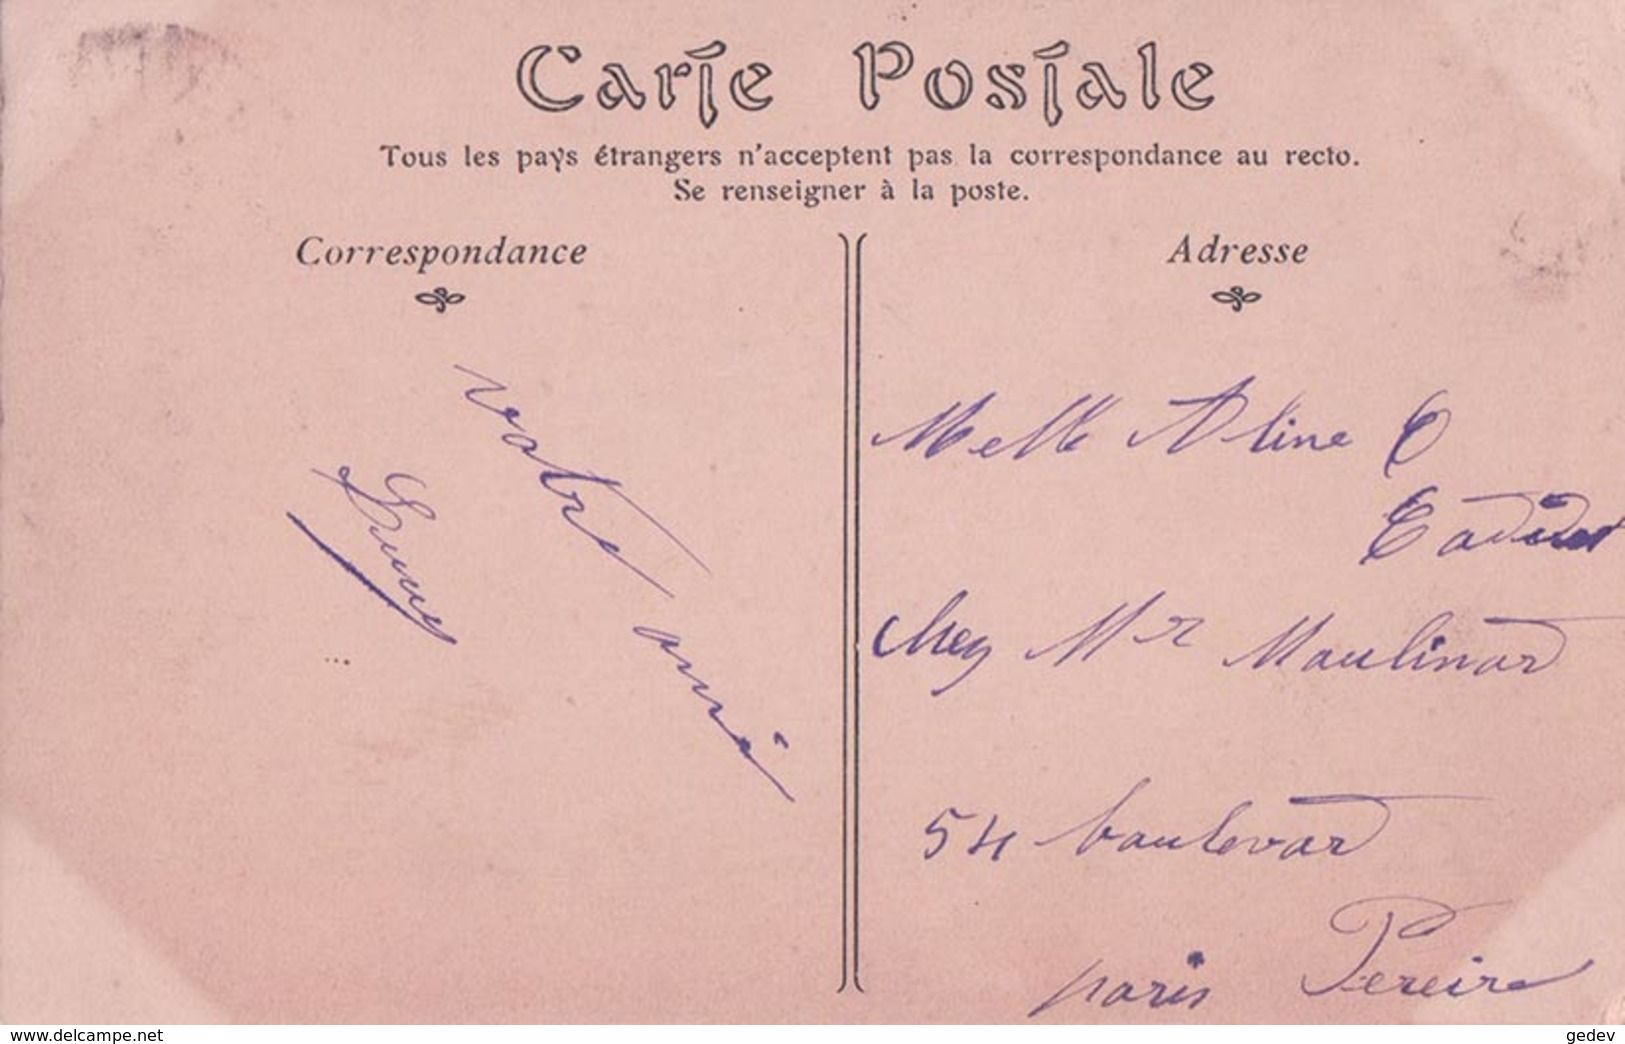 Carte Postale
Tous les pays étrangers n'acceptent pas la correspondance au recto.
Se renseigner à la poste.
Correspondance
Adresse
votre ami
Melle Aline C
chez Mr Moulinard
54 boulevard
Pereire
paris
www.delcampe.net
gedev